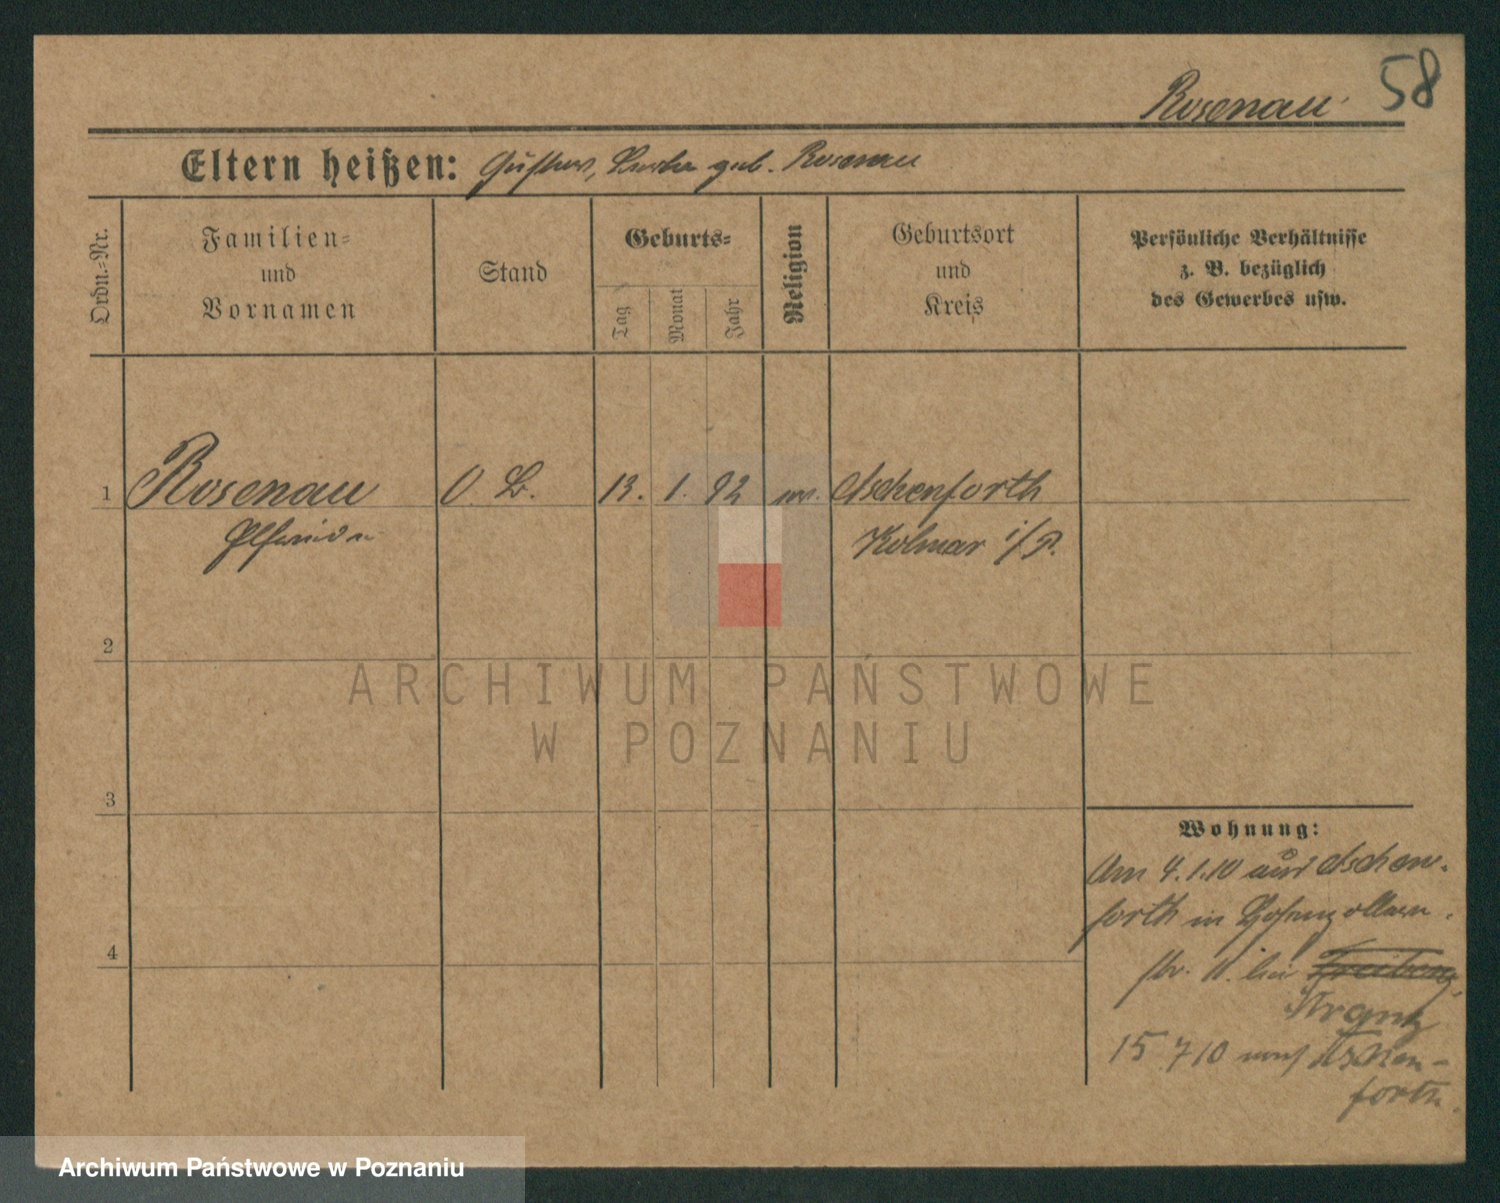 58
Rosenau
Eltern heißen: Gustav, geb. Rosenau
Ordn.-Nr.
Familien-
und
Vornamen
Stand
Geburts-
Tag
Monat
Jahr
Religion
Geburtsort
und
Kreis
Persönliche Verhältnisse
z. B. bezüglich
des Gewerbes usw.
1 Rosenau 13. 1. 92 Aschenforth
Kolmar i/P.
2
3
4
Wohnung:
Am 4.1.10 aus Aschen-
forth in Hohenzollern-
str. 11. bei Freiberg
Krantz
15.7 10 nach Aschen-
forth.
ARCHIWUM PAŃSTWOWE
W POZNANIU
Archiwum Państwowe w Poznaniu